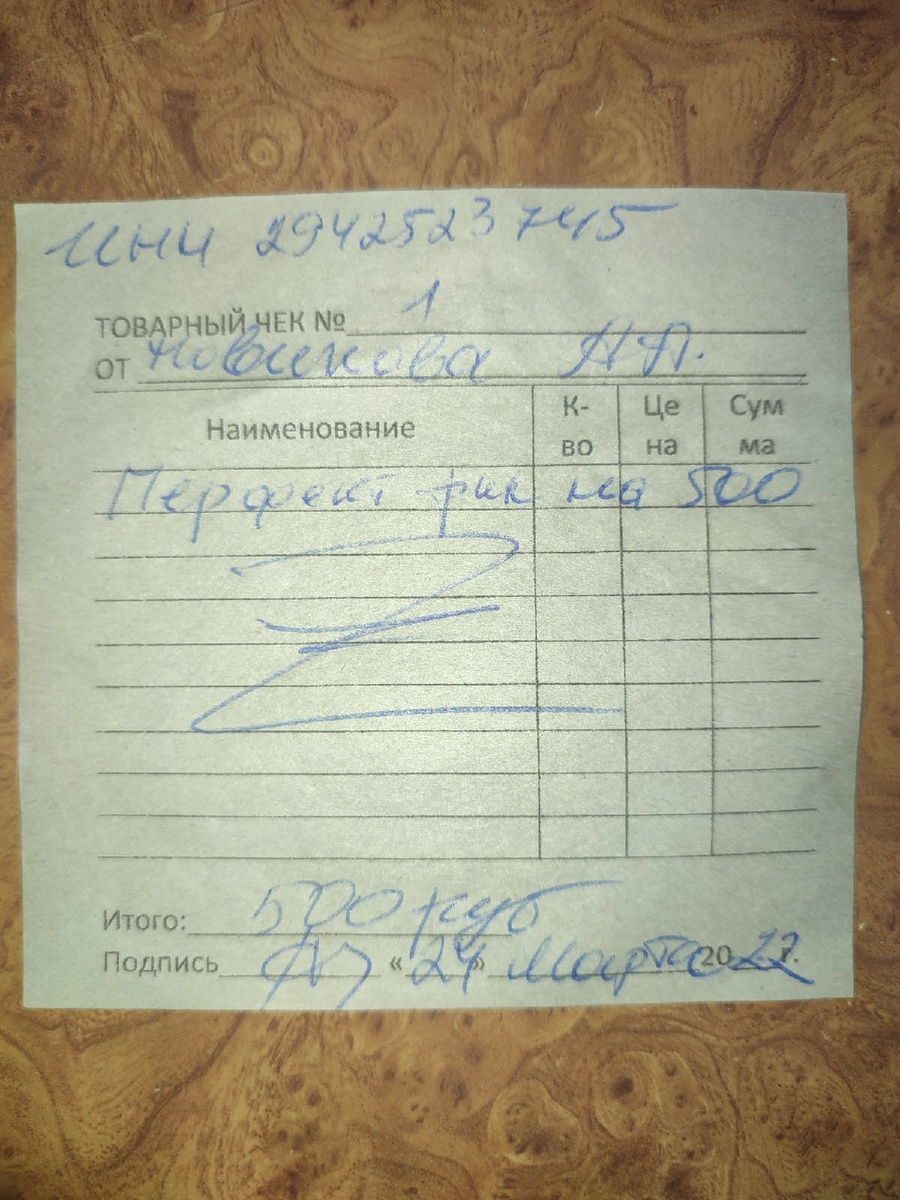 ИНН 29425237415
ТОВАРНЫЙ ЧЕК № 1
ОТ Новикова А.П.
Наименование К-во Цена Сумма
Перфект рик на 500
Итого: 500 руб
Подпись « 24 » марта 2022 г.